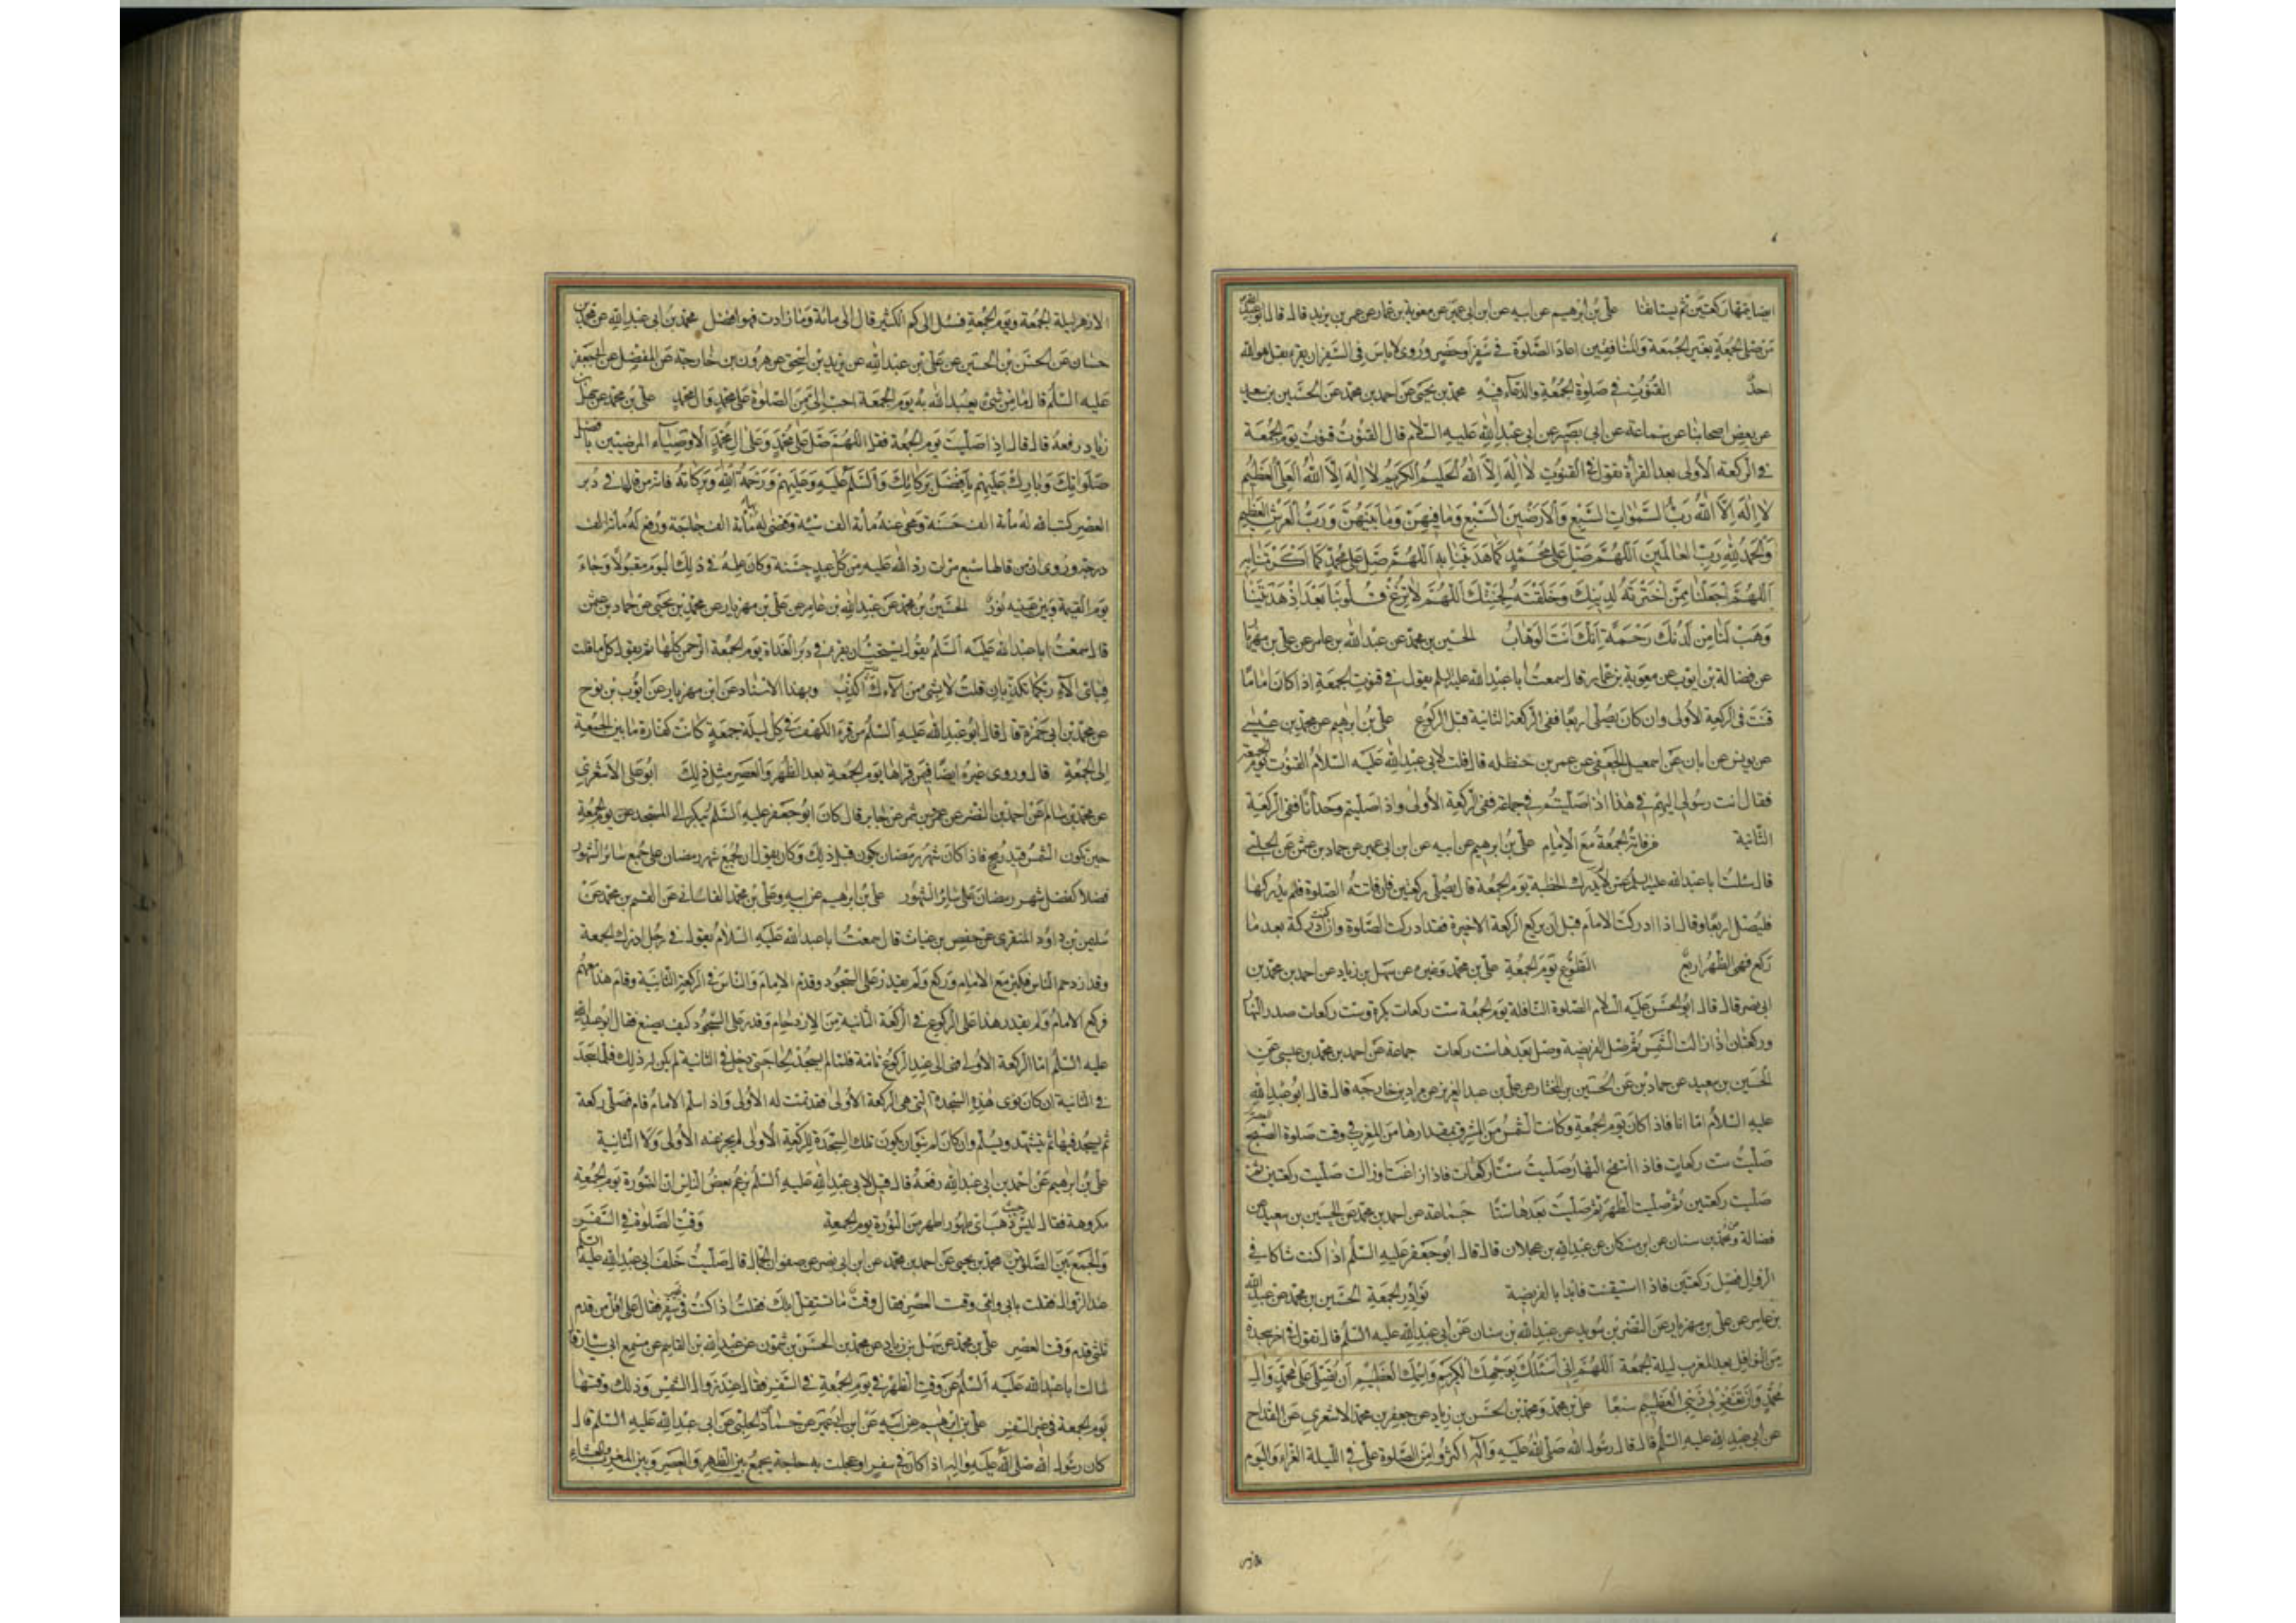 ايضا يتمها ركعتين ثم يستانفها علي بن ابرهيم عن ابيه عن ابن ابي عمير عن معوية بن عمار عن عمر بن يزيد قال قال ابو عبد الله
من صلى الجمعة بغير الجمعة والمنافقين اعاد الصلوة في سفر او حضر وروى لا باس في السفر ان يقرء بقل هو الله
احد القنوت في صلوة الجمعة والدعاء فيه محمد بن يحيى عن احمد بن محمد عن الحسين بن سعيد
عن بعض اصحابنا عن سماعة عن ابي بصير عن ابي عبد الله عليه السلام قال القنوت قنوت يوم الجمعة
في الركعة الاولى بعد القرأة تقول في القنوت لا اله الا الله الحليم الكريم لا اله الا الله العلي العظيم
لا اله الا الله رب السموات السبع والارضين السبع وما فيهن وما بينهن ورب العرش العظيم
والحمد لله رب العالمين اللهم صل على محمد كما هديتنا به اللهم صل على محمد كما اكرمتنا به
اللهم اجعلنا ممن اخترته لدينك وخلقته لجنتك اللهم لا تزغ قلوبنا بعد اذ هديتنا
وهب لنا من لدنك رحمة انك انت الوهاب الحسين بن محمد عن عبد الله بن عامر عن علي بن مهزيار
عن فضالة بن ايوب عن معوية بن عمار قال سمعت ابا عبد الله عليه السلم يقول في قنوت الجمعة اذا كان اماما
قنت في الركعة الاولى وان كان يصلى اربعا ففى الركعة الثانية قبل الركوع علي بن ابرهيم عن محمد بن عيسى
عن يونس عن ابان عن اسمعيل الجعفي عن عمر بن حنظله قال قلت لابي عبد الله عليه السلام القنوت يوم الجمعة
فقال انت رسولى اليهم في هذا اذا صليتم في جماعة ففي الركعة الاولى واذا صليتم وحدانا ففي الركعة
الثانية من فاته الجمعة مع الامام علي بن ابرهيم عن ابيه عن ابن ابي عمير عن حماد بن عثمن عن الحلبي
قال سئلت ابا عبد الله عليه السلم عمن لم يدرك الخطبة يوم الجمعة قال يصلى ركعتين فان فاتته الصلوة فلم يدركها
فليصل اربعا وقال اذا ادركت الامام قبل ان يركع الركعة الاخيرة فقد ادركت الصلوة وان ادركته بعد ما
ركع فهى الظهر اربع التطوع يوم الجمعة علي بن محمد وغيره عن سهل بن زياد عن احمد بن محمد بن
ابي نصر قال قال ابو الحسن عليه السلام الصلوة النافلة يوم الجمعة ست ركعات بكرة وست ركعات صدر النهار
وركعتان اذا زالت الشمس ثم صل الفريضة وصل بعدها ست ركعات جماعة عن احمد بن محمد بن عيسى عن
الحسين بن سعيد عن حماد بن عن الحسين بن المختار عن علي بن عبد العزيز عن مراد بن خارجه قال قال ابو عبد الله
عليه السلام اما انا فاذا كان يوم الجمعة وكانت الشمس من المشرق بمقدارها من المغرب في وقت صلوة العصر
صليت ست ركعات فاذا انتفخ النهار صليت ستا ركعات فاذا زاغت او زالت صليت ركعتين ثم
صليت ركعتين ثم صليت الظهر ثم صليت بعدها ستا جماعة عن احمد بن محمد عن الحسين بن سعيد عن
فضالة ومحمد بن سنان عن ابن مسكان عن عبد الله بن عجلان قال قال ابو جعفر عليه السلم اذا كنت شاكا في
الزوال فصل ركعتين فاذا استيقنت فابدا بالفريضة نوادر الجمعة الحسين بن محمد عن عبد الله
بن عامر عن علي بن مهزيار عن النضر بن سويد عن عبد الله بن سنان عن ابي عبد الله عليه السلم قال تقول في اخر سجدة
من النوافل بعد المغرب ليلة الجمعة اللهم انى اسئلك بوجهك الكريم واسمك العظيم ان تصلى على محمد وال
محمد وان تغفر لي ذنبى العظيم سبعا علي بن محمد ومحمد بن الحسن بن زياد عن جعفر بن محمد الاشعري عن القداح
عن ابي عبد الله عليه السلم قال قال رسول الله صلى الله عليه واله اكثروا من الصلوة على في الليلة الغراء واليوم
الازهر ليلة الجمعة ويوم الجمعة فسئل الى كم الكثير قال الى مائة وما زادت فهو افضل محمد بن ابي عبد الله عن محمد بن
حسان عن الحسن بن الحسين عن علي بن عبد الله عن يزيد بن اسحق عن هرون بن خارجه عن المفضل عن ابي جعفر
عليه السلم قال ما من شئ يعبد الله به يوم الجمعة احب الى من الصلوة على محمد وال محمد علي بن محمد عن سهل بن
زياد رفعه قال قال اذا صليت يوم الجمعة فقل اللهم صل على محمد وعلى ال محمد الاوصياء المرضيين بافضل
صلواتك وبارك عليهم بافضل بركاتك والسلم عليه وعليهم ورحمة الله وبركاته فانه من قالها في دبر
العصر كتب الله له مأة الف حسنة ومحى عنه مأة الف سيئة وقضى له بها مأة الف حاجة ورفع له مأة الف
درجة وروى ان من قالها سبع مرات رد الله عليه من كل عبد حسنة وكان عمله في ذلك اليوم مقبولا وجاء
يوم القيمة وبين عينيه نور الحسين بن محمد عن عبد الله بن عامر عن علي بن مهزيار عن محمد بن يحيى عن حماد بن عثمن
قال سمعت ابا عبد الله عليه السلم يقول يستحب ان يقرء في دبر الغداة يوم الجمعة الرحمن كلها ثم تقول كل ما قلت
فباى الآء ربكما تكذبان قلت لا بشئ من الآءك رب اكذب وبهذا الاسناد عن ابن مهزيار عن ايوب بن نوح
عن محمد بن ابي حمزة قال قال ابو عبد الله عليه السلم من قرء الكهف في كل ليلة جمعة كانت كفارة ما بين الجمعة
الى الجمعة قال وروى غيره ايضا فيمن قرأها يوم الجمعة بعد الظهر والعصر مثل ذلك ابو علي الاشعري
عن محمد بن سالم عن احمد بن النضر عن عمرو بن شمر عن جابر قال كان ابو جعفر عليه السلم يبكر الى المسجد يوم الجمعة
حين تكون الشمس قيد رمح فاذا كان شهر رمضان يكون قبل ذلك وكان يقول ان لجمع شهر رمضان على جمع سائر الشهور
فضلا كفضل شهر رمضان على سائر الشهور علي بن ابرهيم عن ابيه وعلي بن محمد القاساني عن القسم بن محمد عن
سليمن بن داود المنقري عن حفص بن غياث قال سمعت ابا عبد الله عليه السلام يقول في رجل ادرك الجمعة
وقد ازدحم الناس فكبر مع الامام وركع ولم يقدر على السجود وقام الامام والناس في الركعة الثانية وقام هذا معهم
فركع الامام ولم يقدر هذا على الركوع في الركعة الثانية من الازدحام وقدر على السجود كيف يصنع فقال ابو عبد الله
عليه السلم اما الركعة الاولى فهى الى عند الركوع تامة فلما لم يسجد لها حتى دخل في الثانية لم يكن له ذلك فلما سجد
في الثانية ان كان نوى هذه السجدة التي هي الركعة الاولى فقد تمت له الاولى واذا سلم الامام قام فصلى ركعة
ثم يسجد فيها ثم يتشهد ويسلم وان كان لم ينو ان يكون تلك السجدة للركعة الاولى لم يجز عنه الاولى ولا الثانية
علي بن ابرهيم عن احمد بن ابي عبد الله رفعه قال قيل لابي عبد الله عليه السلم يزعم بعض الناس ان النورة يوم الجمعة
مكروهة فقال ليس حيث ذهبت اي طهور اطهر من النورة يوم الجمعة وقت الصلوة في السفر
والجمع بين الصلوتين محمد بن يحيى عن احمد بن محمد عن ابن ابي نصر عن صفوان الجمال قال صليت خلف ابي عبد الله عليه السلم
عند الزوال فقلت بابي وامى وقت العصر فقال وقت ما تستقبل ابلك فقلت اذا كنت في غير سفر فقال على اقل من قدم
ثلثى قدم وقت العصر علي بن محمد عن سهل بن زياد عن محمد بن الحسن بن شمون عن عبد الله بن القاسم عن مسمع ابي سيار قال
سالت ابا عبد الله عليه السلم عن وقت الظهر في يوم الجمعة في السفر فقال عند زوال الشمس وذلك وقتها
يوم الجمعة في غير السفر علي بن ابرهيم عن ابيه عن ابن ابي عمير عن حماد عن الحلبي عن ابي عبد الله عليه السلم قال
كان رسول الله صلى الله عليه واله اذا كان في سفر او عجلت به حاجة يجمع بين الظهر والعصر وبين المغرب والعشاء